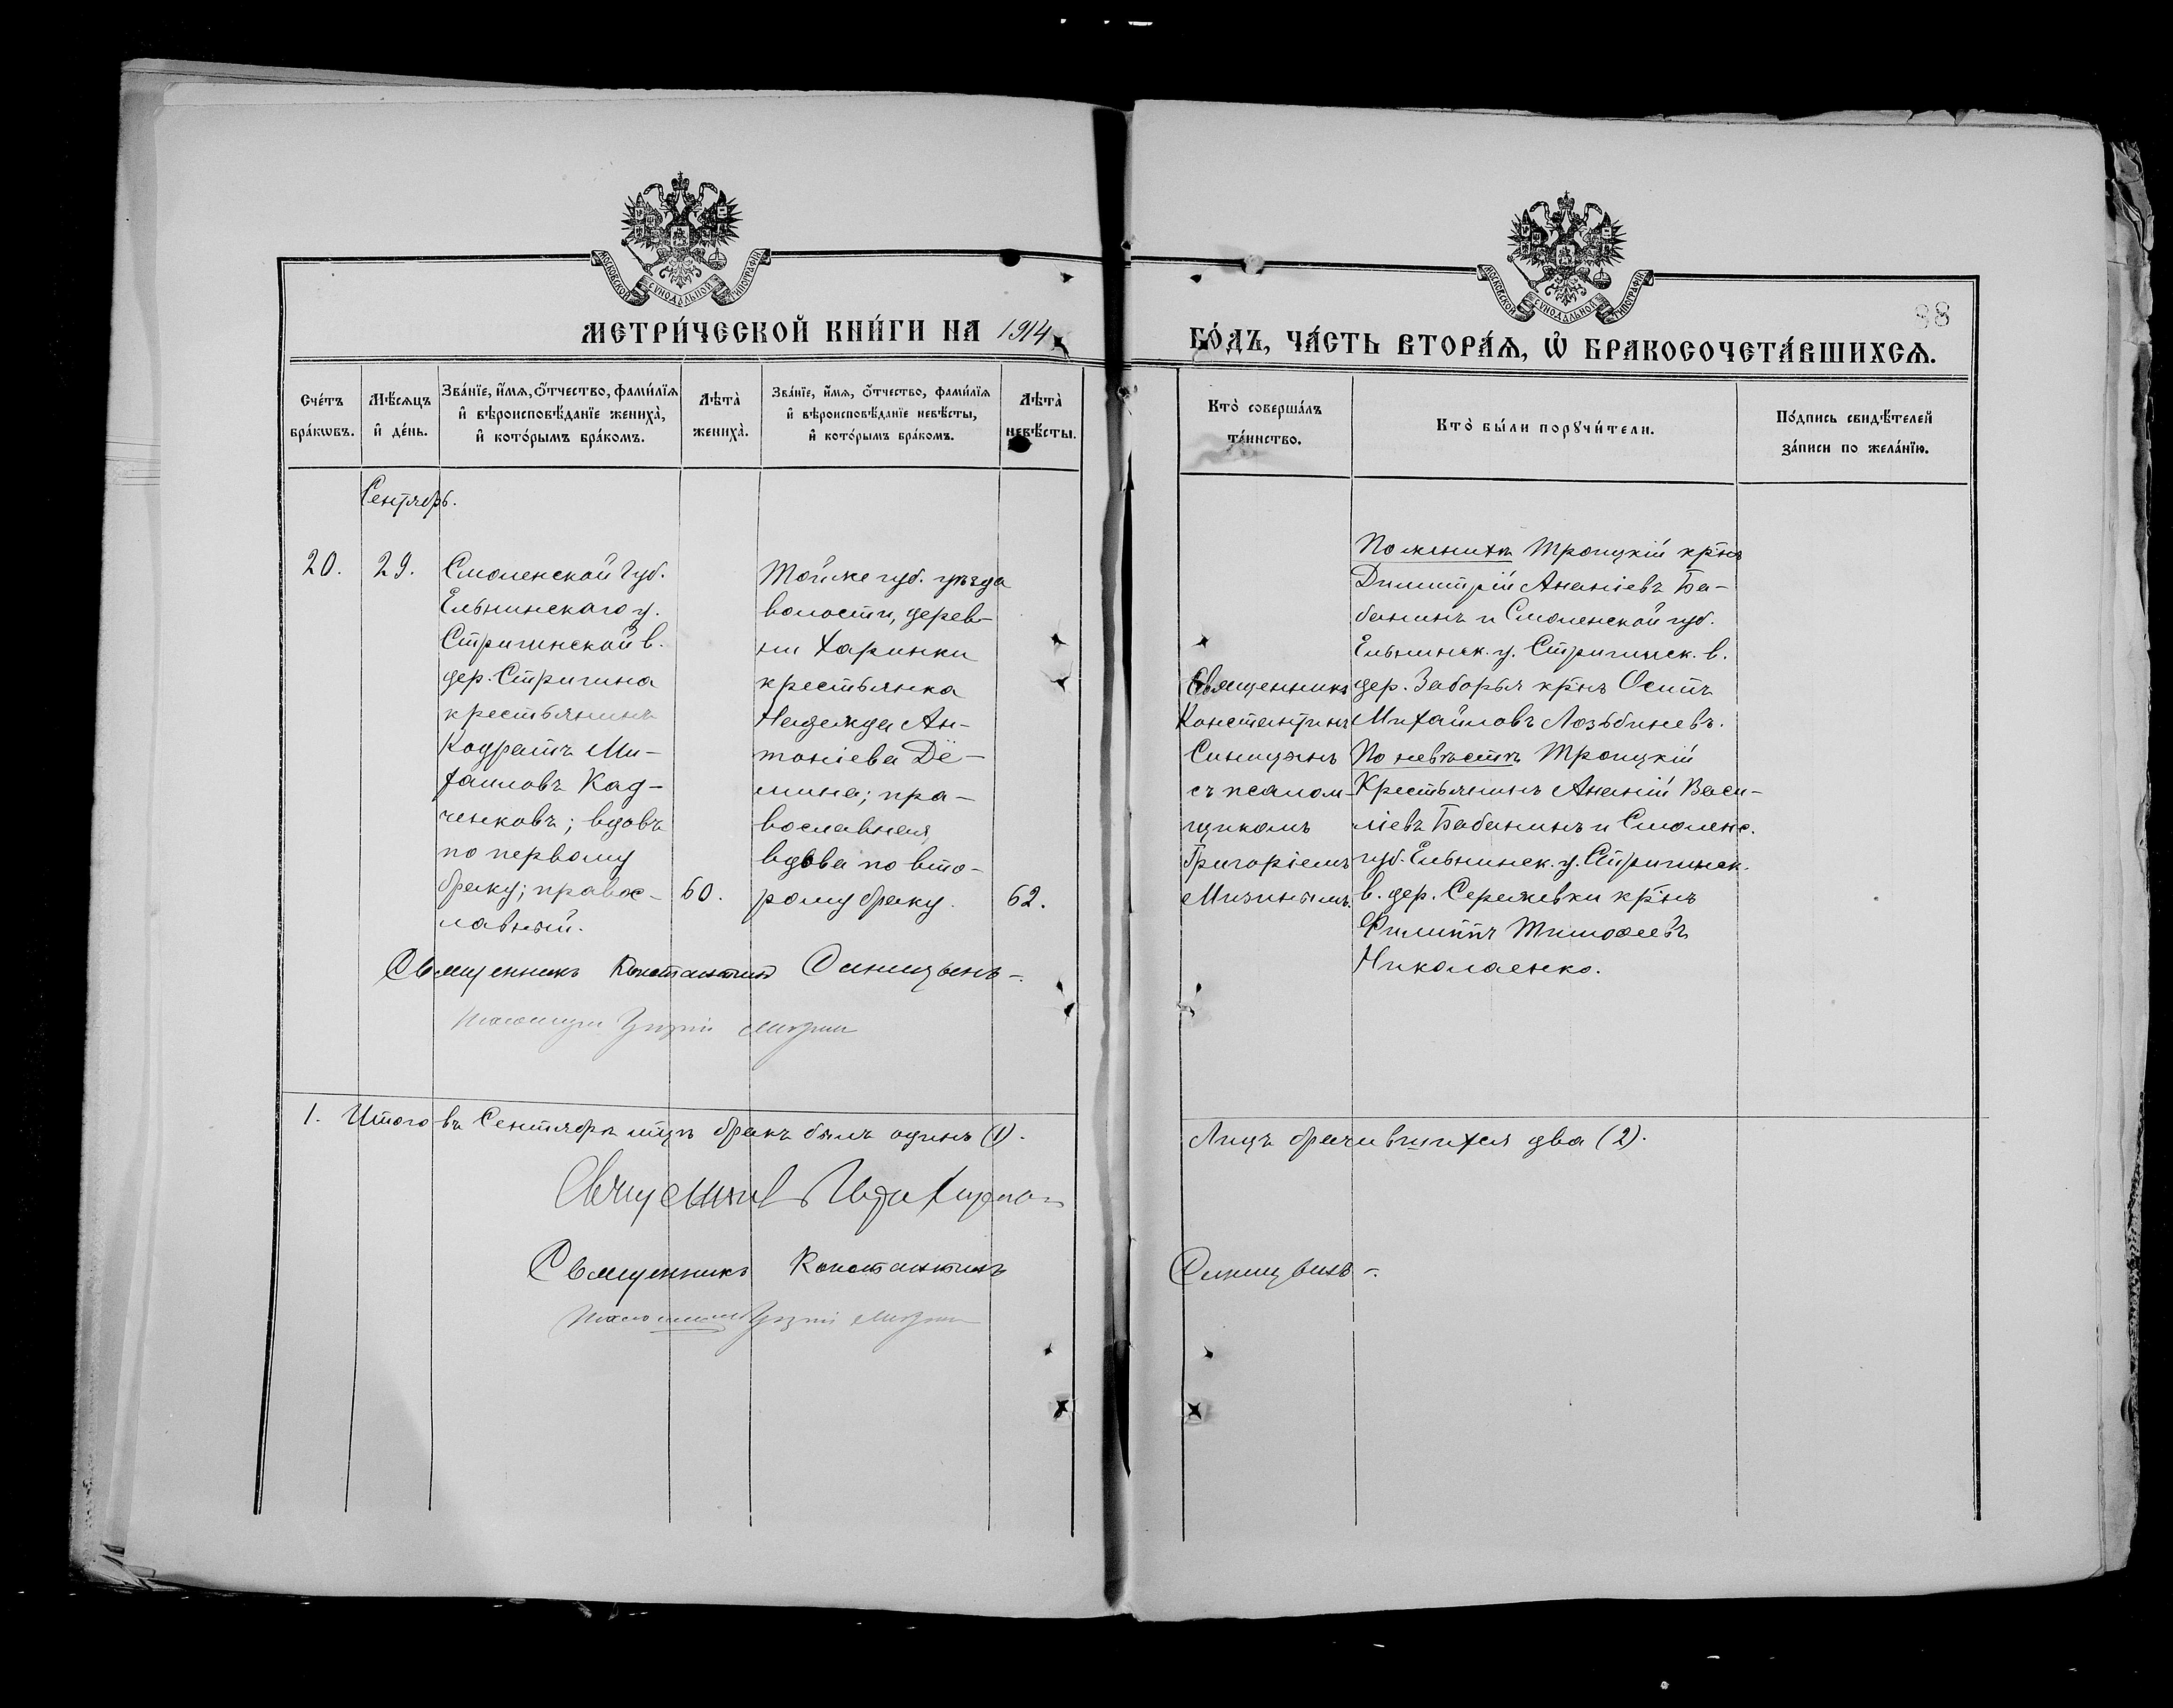 МОСКОВСКОЙ СѴНОДАЛЬНОЙ ТИПОГРАФІИ
МОСКОВСКОЙ СѴНОДАЛЬНОЙ ТИПОГРАФІИ
88
МЕТРИ́ЧЕСКОЙ КНИ́ГИ НА 1914
ГО́ДЪ, ЧА́СТЬ ВТОРА́Ѧ, Ѡ БРАКОСОЧЕТА́ВШИХСѦ.
Сче́тъ
бра́кѡвъ.
Мѣ́сѧцъ
и҆ де́нь.
Зва́нїе, и҆́мѧ, ѻ҆́тчество, фами́лїѧ
и҆ вѣроисповѣ́данїе жениха̀,
и҆ кото́рымъ бра́комъ.
Лѣ́та
жениха̀.
Зва́нїе, и҆́мѧ, ѻ҆́тчество, фами́лїѧ
и҆ вѣроисповѣ́данїе невѣ́сты,
и҆ кото́рымъ бра́комъ.
Лѣ́та
невѣ́сты.
Кто̀ соверша́лъ
та́инство.
Кто̀ бы́ли порꙋчи́тели.
По́дпись свидѣ́телей
за́писи по жела́нїю.
Сентябрь.
20.
29.
Смоленской Губ.
Ельнинскаго у.
Стригинской в.
дер. Стригина
крестьянинъ
Кодратъ Ми-
хаиловъ Кад-
ченковъ; вдовъ
по первому
браку; правос-
лавный.
60.
Тойже губ. уѣзда
волости, дерев-
ни Харинки
крестьянка
Надежда Ан-
тоніева Дё-
мина; пра-
вославная,
вдова по вто-
рому браку.
62.
Священникъ
Константинъ
Синицынъ
съ псалом-
щикомъ
Григоріемъ
Мизинымъ.
По женихѣ Троицкій кр̃нъ
Димитрій Ананіевъ Ба-
банинъ и Смоленской губ.
Ельнинск. у. Стригинск. в.
дер. Заборья кр̃нъ Осипъ
Михайловъ Лозьбиневъ.
По невѣстѣ Троицкій
Крестьянинъ Ананій Васи-
ліевъ Бабанинъ и Смоленс.
губ. Ельнинск. у. Стригинск.
в. дер. Сережевки кр̃нъ
Филиппъ Тимоѳеевъ
Николаенко.
Священникъ Константинъ Синицынъ-.
Псаломщик Григорій Мизин
1. Итого въ Сентябрѣ мцѣ бракъ былъ одинъ (1).
Лицъ брачившихся два (2).
Священникъ
Священникъ Константинъ
Синицынъ-.
Псаломщик Григорій Мизин